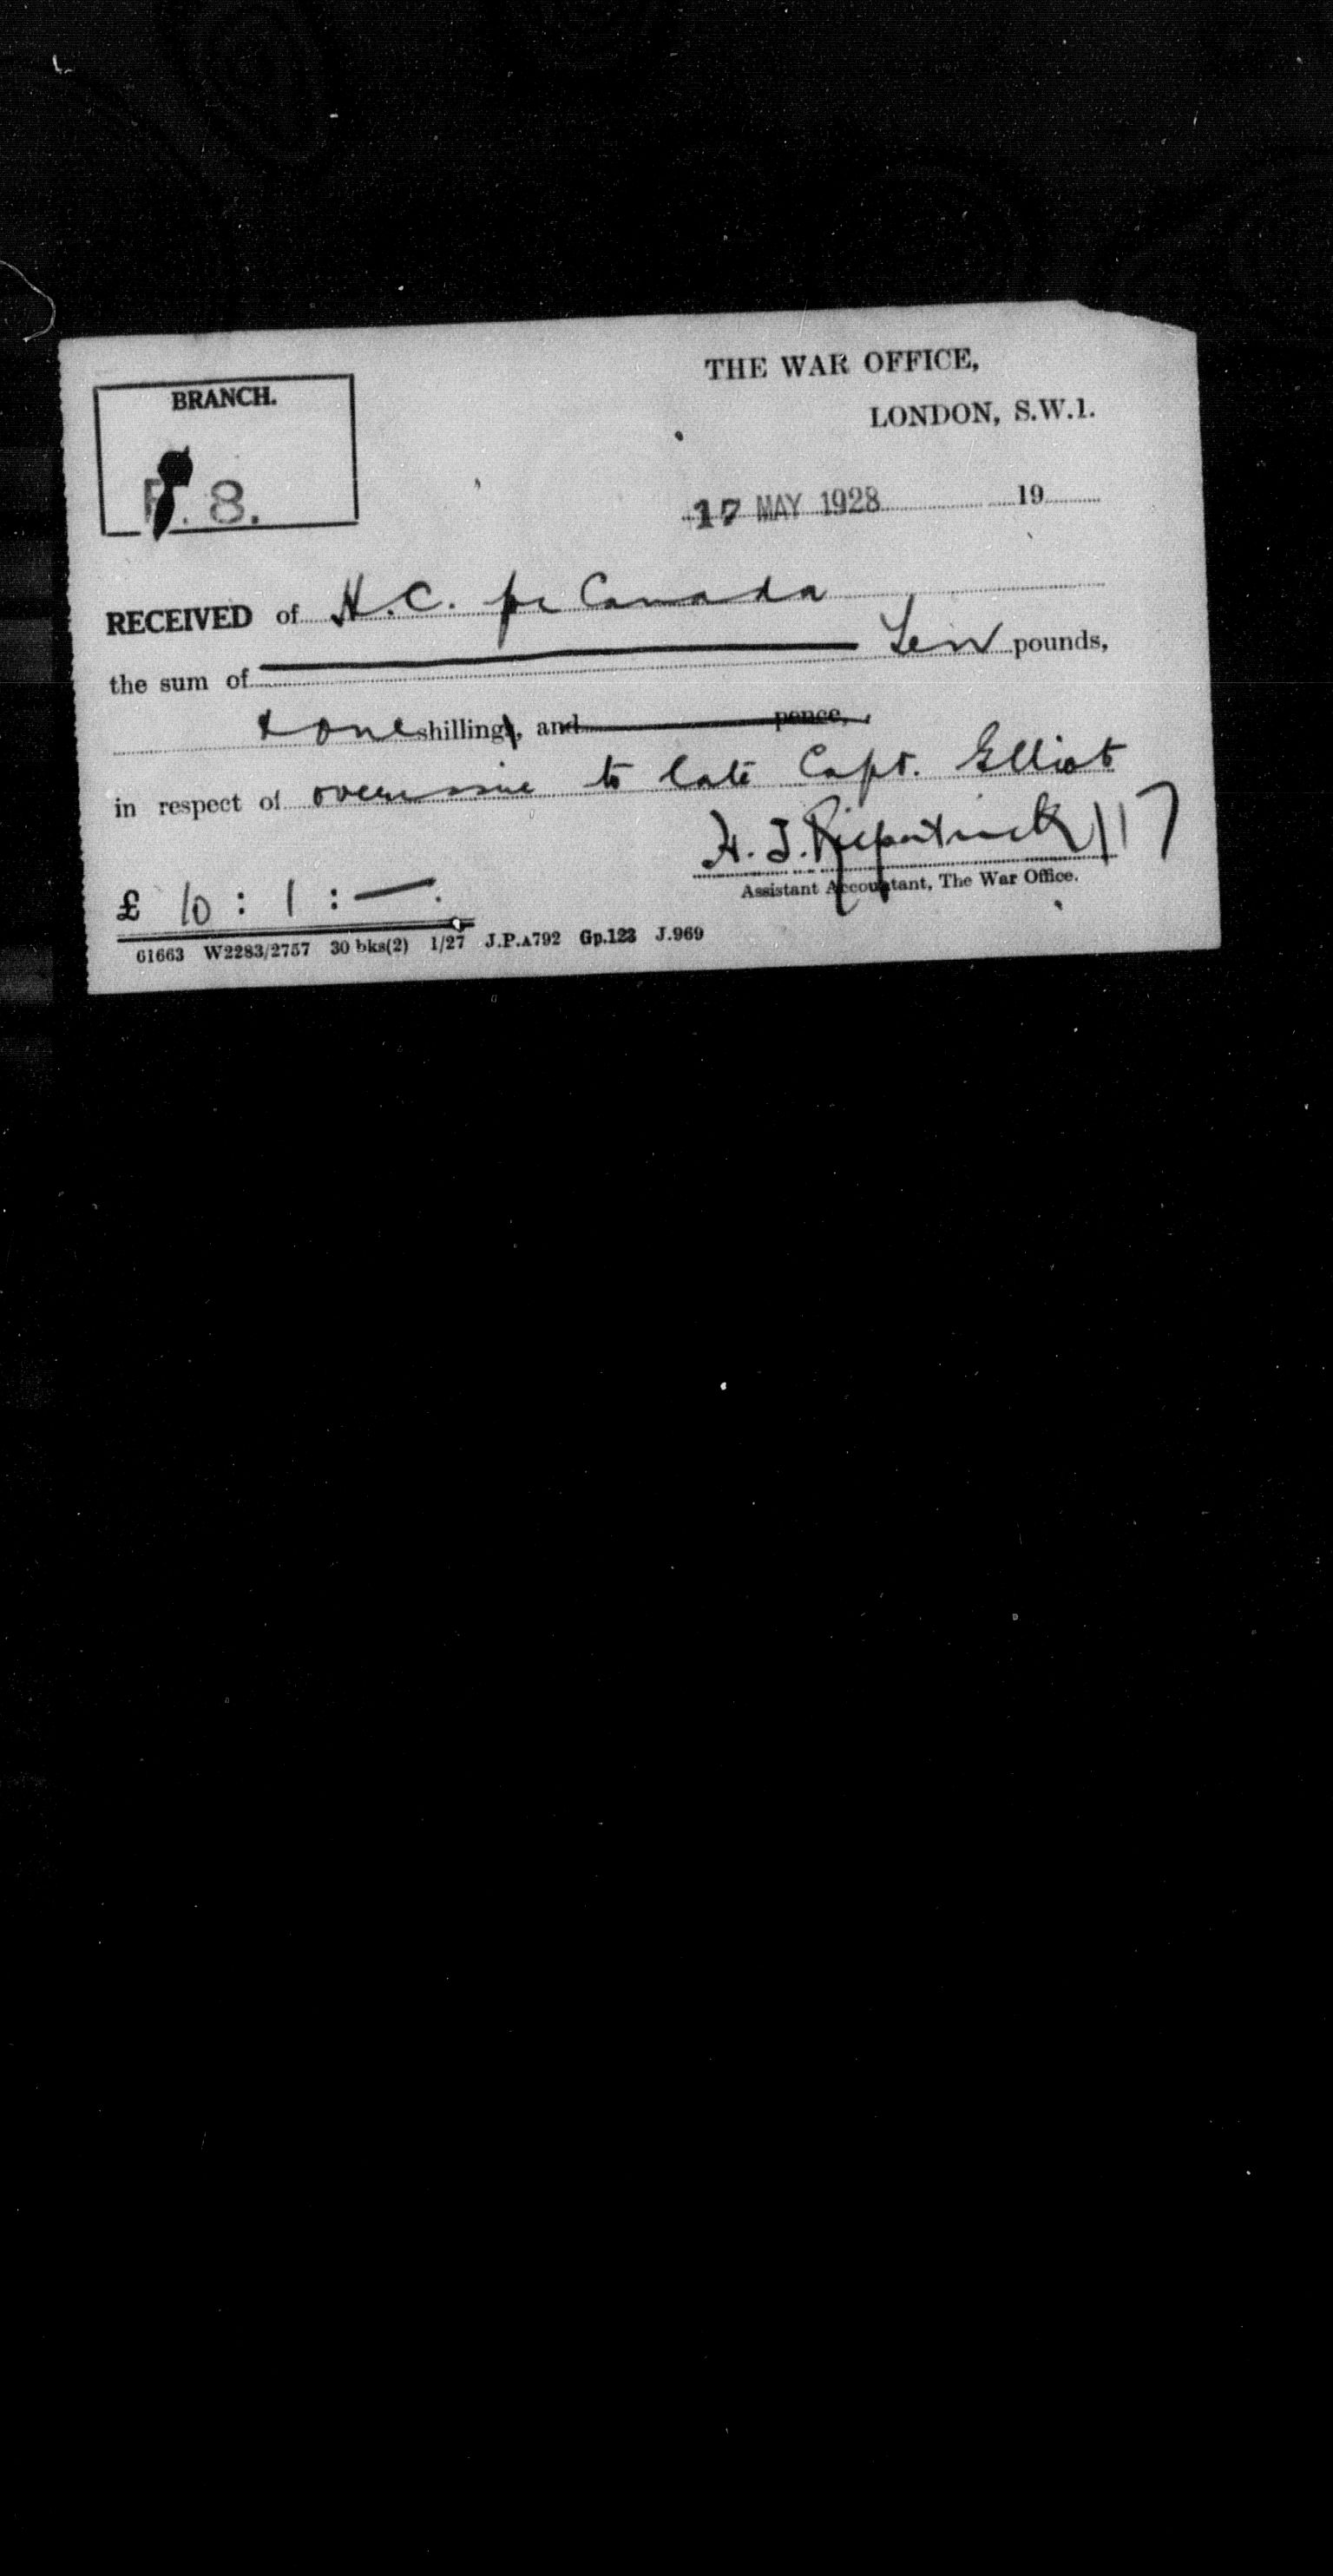 THE WAR OFFICE,
LONDON, S.W.1.
BRANCH.
F. 8.
17 MAY 1928 19
RECEIVED of H.C. for Canada
the sum of Ten pounds,
& one shilling, and pence,
in respect of overissue to late Capt. Elliot
H. J. Kilpatrick 117
Assistant Accountant, The War Office.
£ 10 : 1 : —.
61663 W2283/2757 30 bks(2) 1/27 J.P.A792 Gp.123 J.969